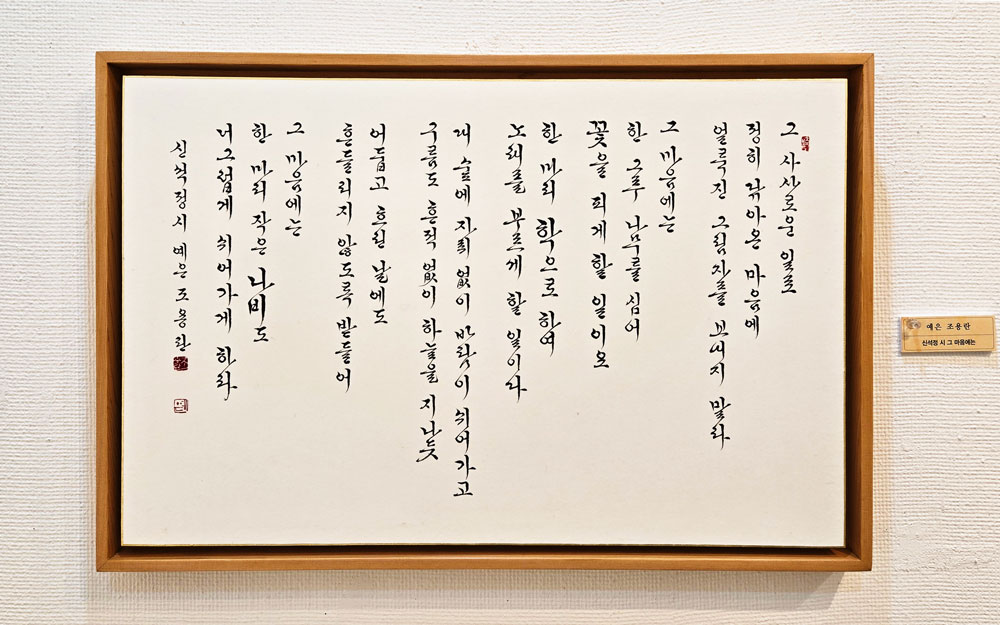 그 사사로운 일로
정히 닦아온 마음에
얼룩진 그림자를 보내지 말라
그 마음에는
한 그루 나무를 심어
꽃을 피게 할 일이오
한 마리 학으로 하여
노래를 부르게 할 일이라
대 숲에 자취 없이 바람이 쉬어가고
구름도 흔적 없이 하늘을 지나듯
어둡고 흐린 날에도
흔들리지 않도록 받들어
그 마음에는
한 마리 작은 나비도
너그럽게 쉬어가게 하라
신석정시 예은 조용란
예은 조용란
신석정 시 그 마음에는